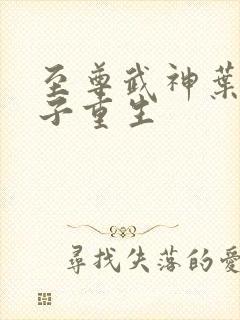 至尊武神葉
子重生
尋找失落的愛